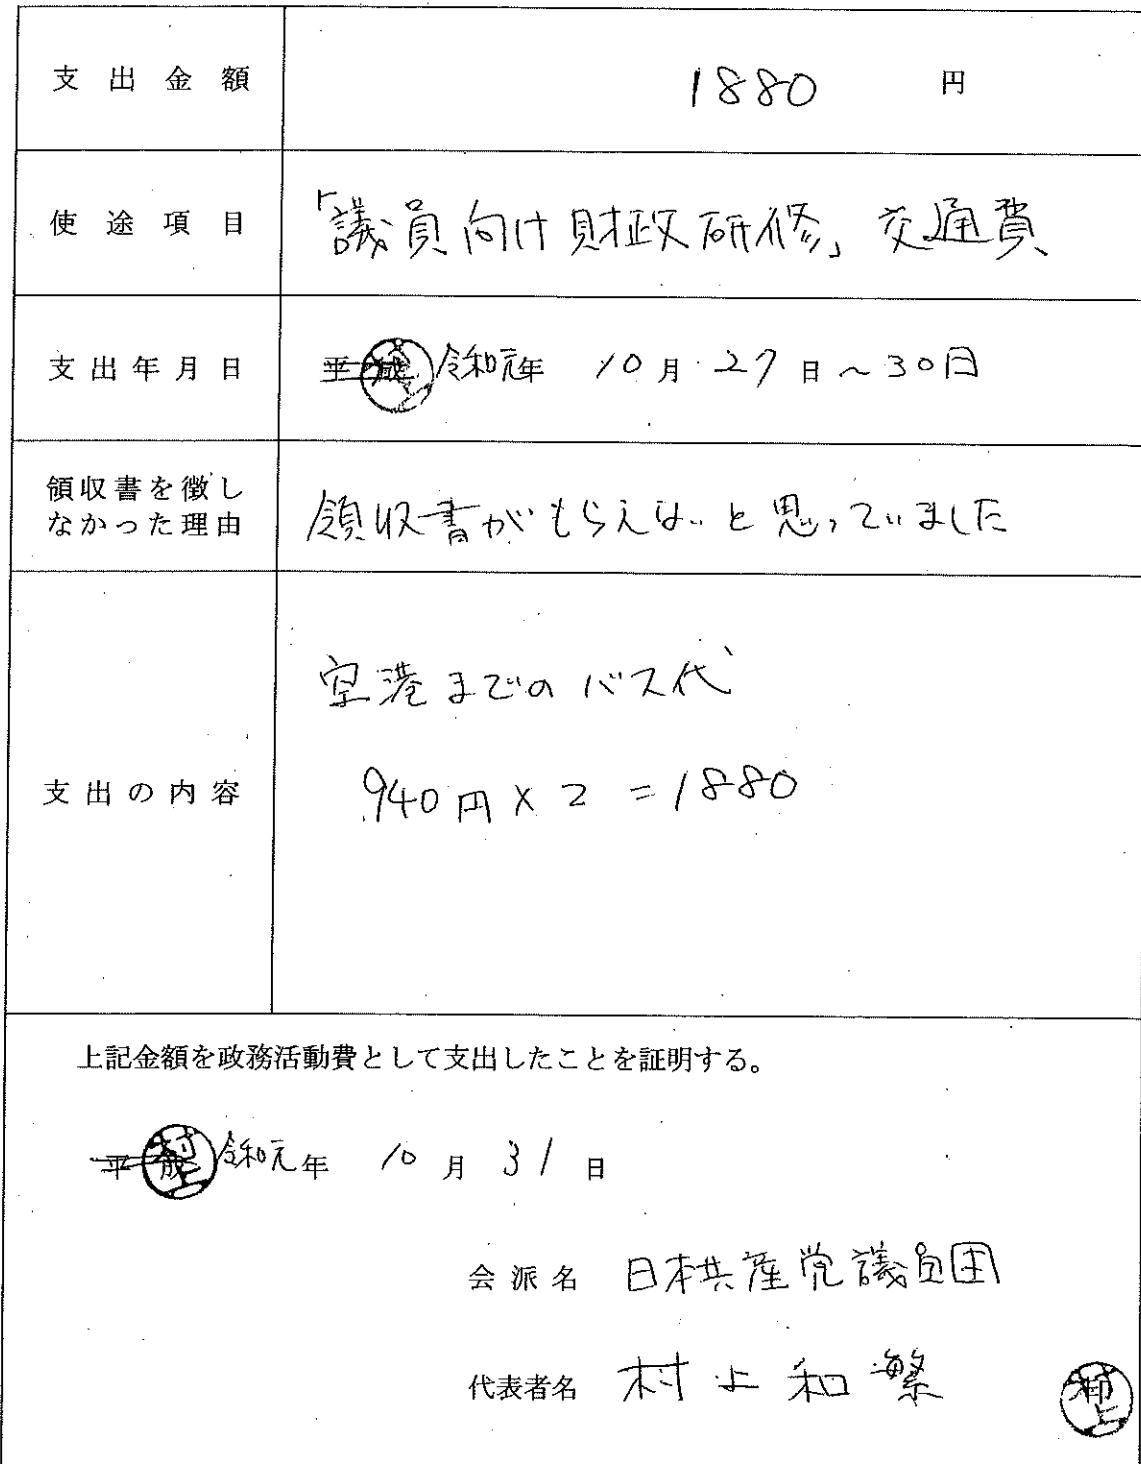 支出金額 1880 円
使途項目 「議員向け財政研修」交通費
支出年月日 平成 令和元年 10月27日～30日
領収書を徴し
なかった理由 領収書がもらえないと思っていました
支出の内容
空港までのバス代
940円×2=1880
上記金額を政務活動費として支出したことを証明する。
平成 令和元年 10月31日
会派名 日本共産党議員団
代表者名 村上和繁 村上